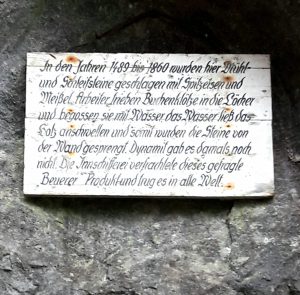 In den Jahren 1489 bis 1860 wurden hier Mühl-
und Schleifsteine geschlagen mit Spitzeisen und
Meißel. Arbeiter trieben Buchenklötze in die Löcher
und begossen sie mit Wasser, das Wasser ließ das
Holz anschwellen und somit wurden die Steine von
der Wand gesprengt. Dynamit gab es damals noch
nicht. Die Innschifferei verfrachtete dieses gefragte
Beuerer Produkt und trug es in alle Welt.